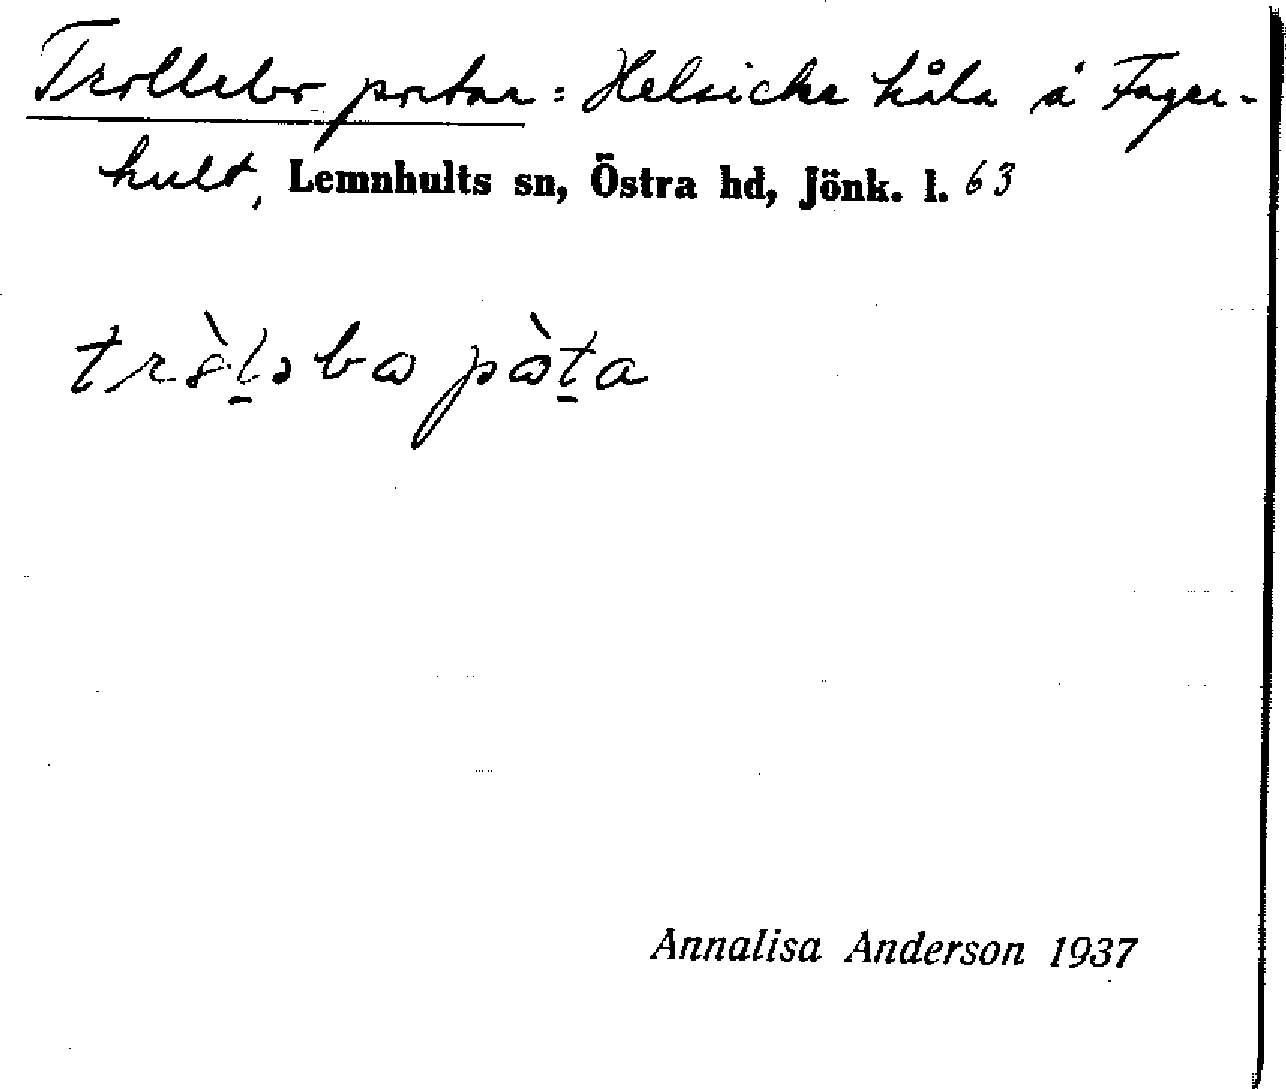 Trollebo portar = Helsicke håla å Fager-
hult, Lemnhults sn, Östra hd, Jönk. l. 63
trò̀l̠əbω pὼt̠a
Annalisa Anderson 1937